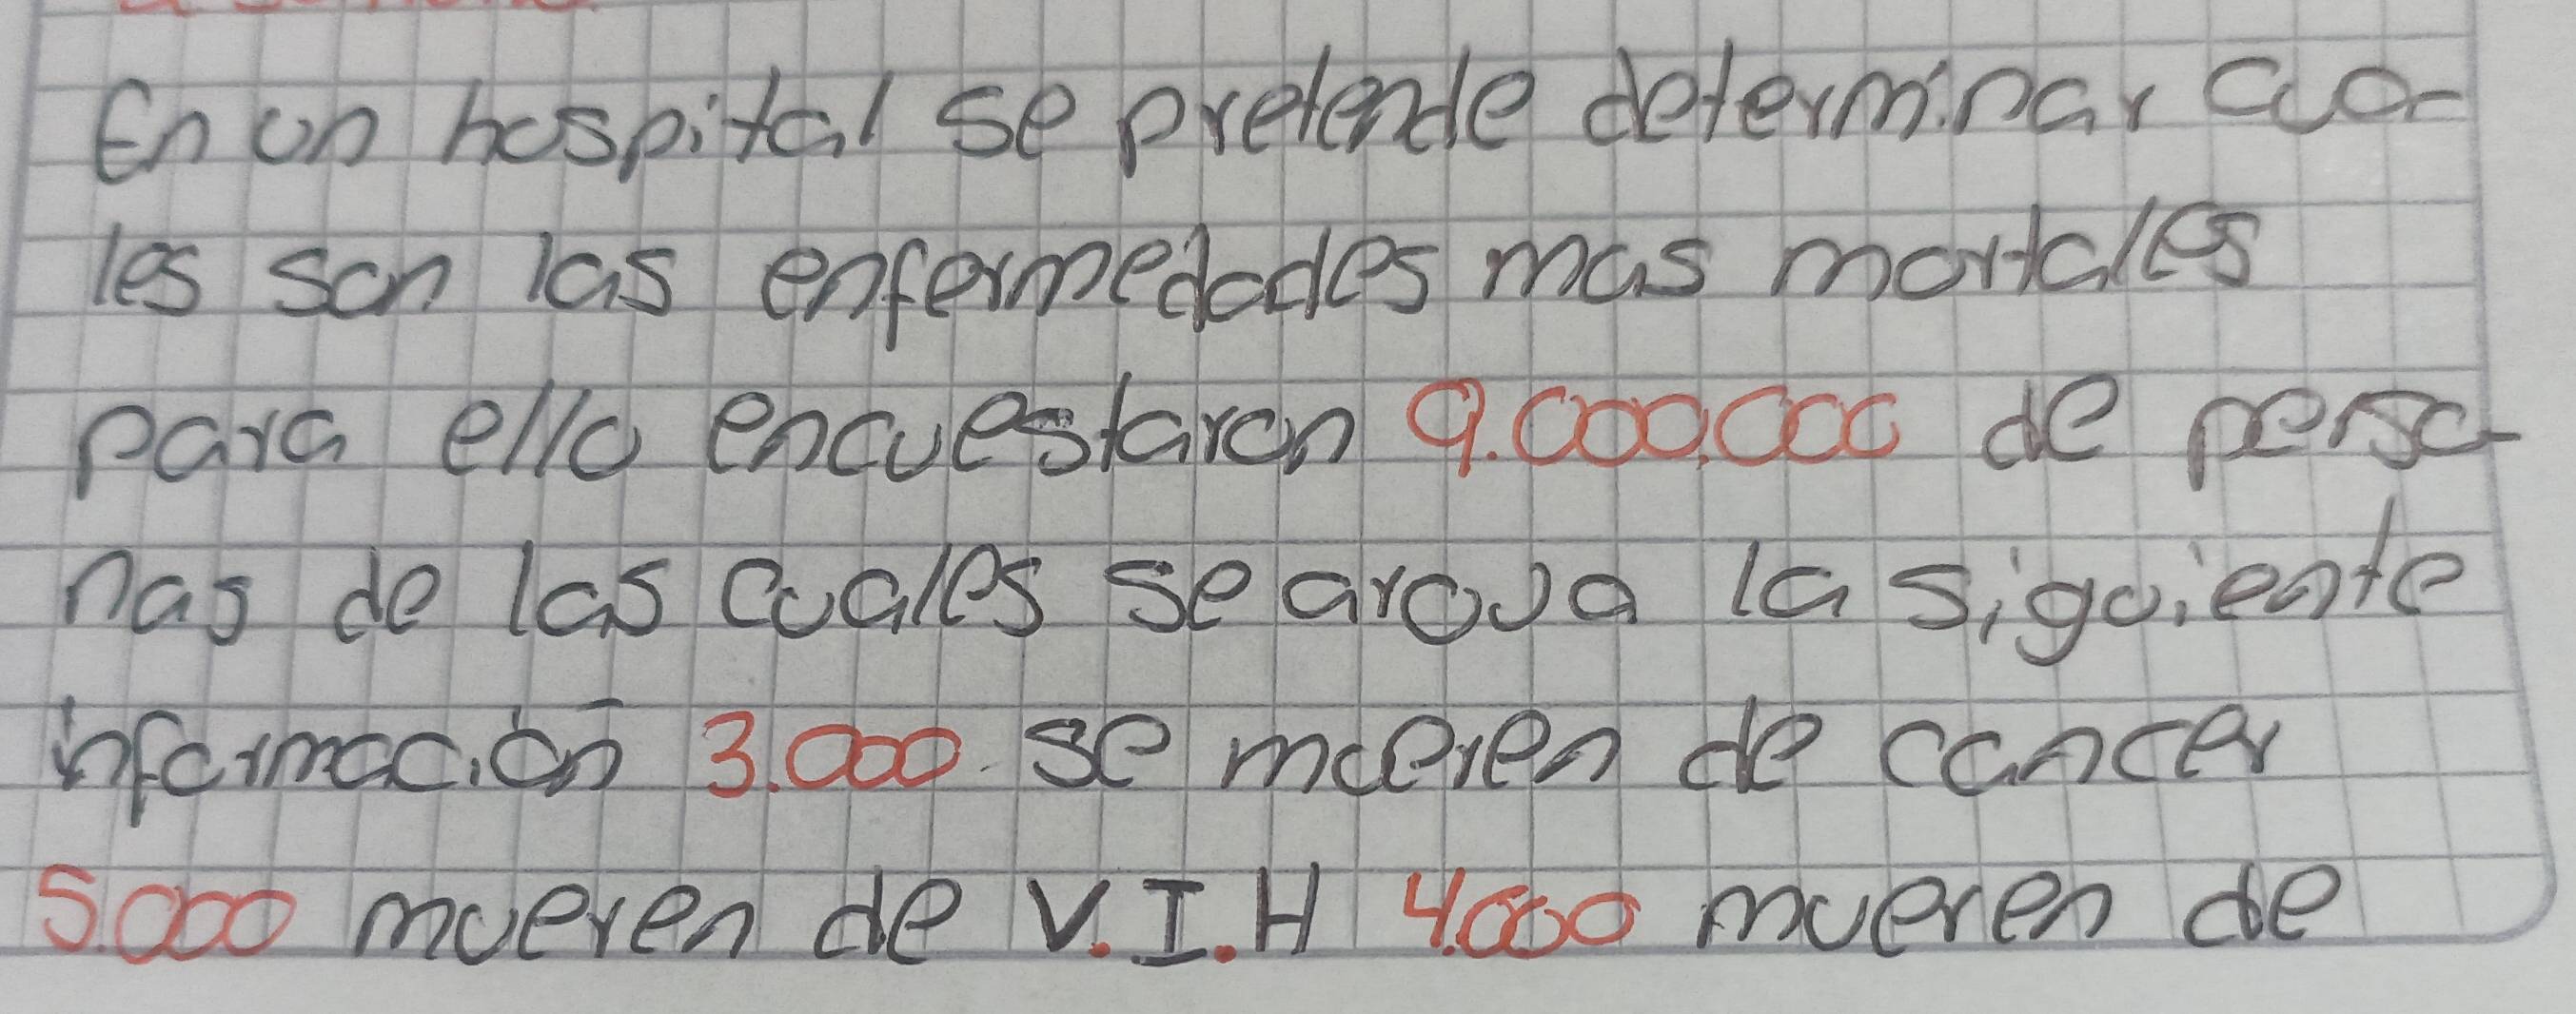 En un hospital se pretende determinar cua-
les son las enfermedades mas mortales
para ello encuestaron 9.000.000 de perso-
nas de las cuales se arova la siguiente
información 3.000 se mueren de cancer
5.000 mueren de V.I.H 4.000 mueren de